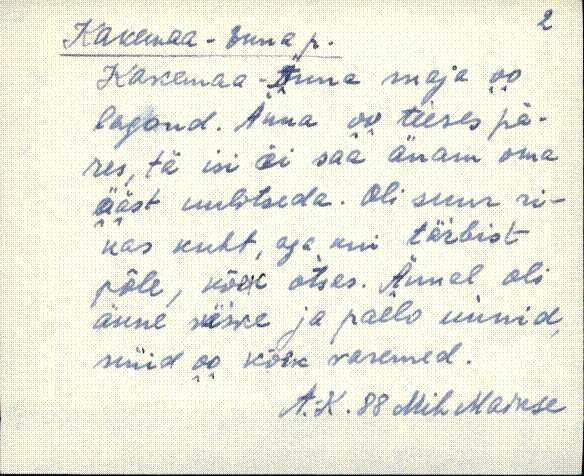 2
Kakemaa-Enna p.
Kakemaa-Änna maja oo
lagond. Änna oo teeses pä-
res, tä isi äi saa änam oma
ääst uulitseda. Oli suur ri-
kas kuht, aga kui tärbist
põle, kõik otses. Ännal oli
änne väske ja paelo uinid,
nüid oo kõik raremed.
A.-K. 88 Mih Mairse